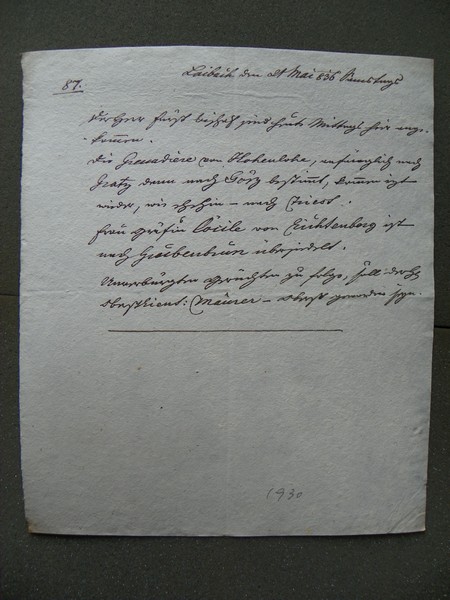 Laibach den 21 Mai 836 Samstags
87.
Der Herr Fürst bischof sind heute Mittags hier ange-
kommen.
Die Grenadiere von Hohenlohe, anfänglich nach
Gratz dann nach Görz bestimmt, kommen jetzt
wieder, wie ehehin – nach Triest.
Frau Gräfin Cöcile von Lichtenberg ist
nach Grubenbrun übersiedelt.
Unverbürgten Gerüchten zu folge, soll der H
Obestlieut: Maurer – Oberst geworden seyn.
1930